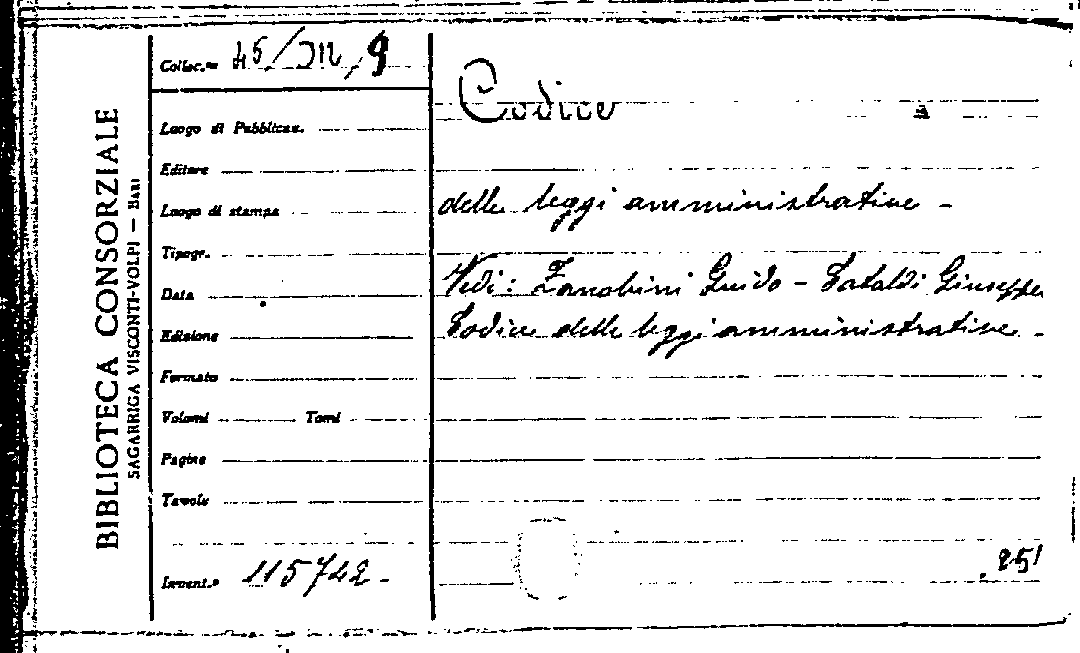 BIBLIOTECA CONSORZIALE
SAGARRIGA VISCONTI-VOLPI — BARI
Colloc.ne 45/ 9
Luogo di Pubblicaz.
Editore
Luogo di stampa
Tipogr.
Data
Edizione
Formato
Volumi Tomi
Pagine
Tavole
Invent.o 115742-
Codice
delle leggi amministrative -
Vedi: Zanobini Guido - Giuseppe
Codice delle leggi amministrative -